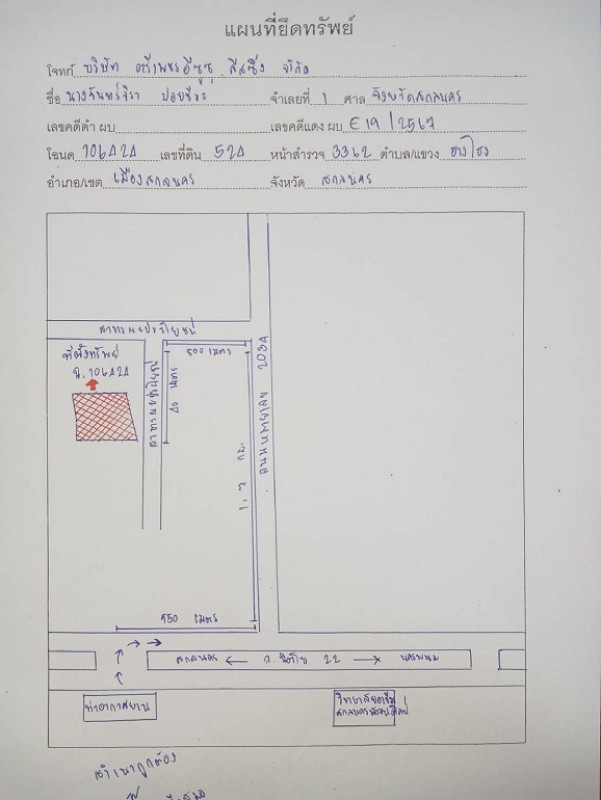 แผนที่ยึดทรัพย์
โจทก์ บริษัท ตรีเพชรอีซูซุ ลีสซิ่ง จำกัด
ชื่อ นางจันทร์จิรา จำเลยที่ 1 ศาล จังหวัดสกลนคร
เลขคดีดำ ผบ เลขคดีแดง ผบ E19/2567
โฉนด 106424 เลขที่ดิน 524 หน้าสำรวจ 3362 ตำบล/แขวง ฮางโฮง
อำเภอ/เขต เมืองสกลนคร จังหวัด สกลนคร
สาธารณประโยชน์
ที่ตั้งทรัพย์
ฉ.106424
500 เมตร
40 เมตร
สาธารณประโยชน์
ถนนหมายเลข 2034
1.7 กม.
550 เมตร
สกลนคร ← ถ.นิตโย 22 → นครพนม
ท่าอากาศยาน
วิทยาลัยอาชีพ
สำเนาถูกต้อง